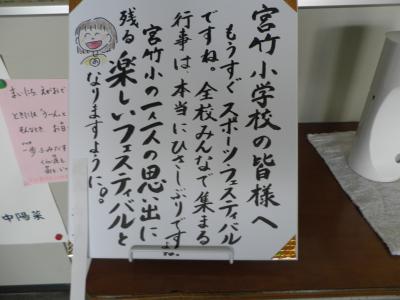 宮竹小学校の皆様へ
もうすぐスポーツフェスティバル
ですね。全校みんなで集まる
行事は、本当にひさしぶりですよね。
宮竹小の一人一人の思い出に
残る楽しいフェスティバルと
なりますように。
中陽菜